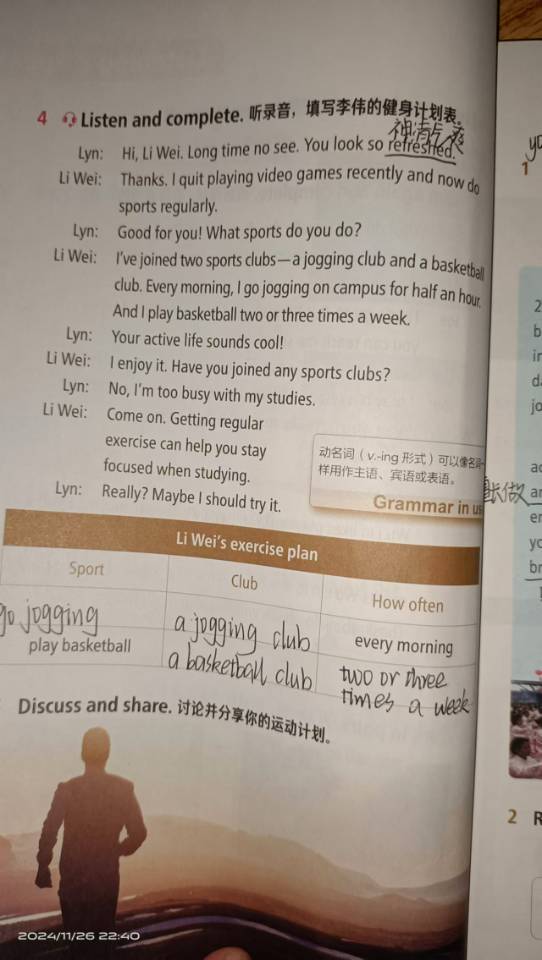 4 Listen and complete. 听录音，填写李伟的健身计划表。
神清气爽
Lyn: Hi, Li Wei. Long time no see. You look so refreshed.
Li Wei: Thanks. I quit playing video games recently and now do
sports regularly.
Lyn: Good for you! What sports do you do?
Li Wei: I've joined two sports clubs—a jogging club and a basketball
club. Every morning, I go jogging on campus for half an hour.
And I play basketball two or three times a week.
Lyn: Your active life sounds cool!
Li Wei: I enjoy it. Have you joined any sports clubs?
Lyn: No, I'm too busy with my studies.
Li Wei: Come on. Getting regular
exercise can help you stay
focused when studying.
Lyn: Really? Maybe I should try it.
动名词（v.-ing 形式）可以像名词一
样用作主语、宾语或表语。
Grammar in us
Li Wei's exercise plan
Sport Club How often
go jogging a jogging club every morning
play basketball a basketball club two or three
times a week
Discuss and share. 讨论并分享你的运动计划。
2024/11/26 22:40
1
2
b
in
d
jo
a
ar
er
yo
br
2 R